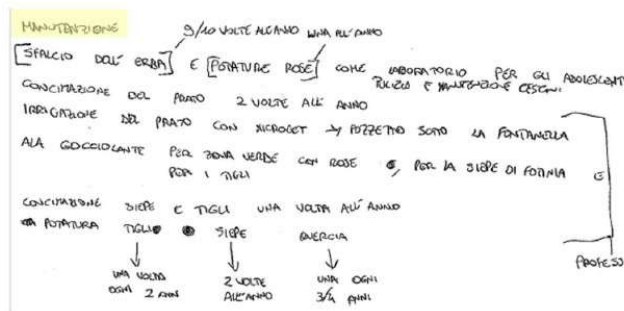 MANUTENZIONE
9/10 VOLTE ALL'ANNO UNA ALL'ANNO
[SFALCIO DELL'ERBA] E [POTATURE ROSE] COME LABORATORIO PER GLI ADOLESCENTI
PULIZIA E MANUTENZIONE CESTINI
CONCIMAZIONE DEL PRATO 2 VOLTE ALL'ANNO
IRRIGAZIONE DEL PRATO CON MICROGET → POZZETTO SOTTO LA FONTANELLA
ALA GOCCIOLANTE PER ZONA VERDE CON ROSE E, PER LA SIEPE DI FOTINIA E
PER I TIGLI
CONCIMAZIONE SIEPE E TIGLI UNA VOLTA ALL'ANNO
POTATURA TIGLI SIEPE QUERCIA
PROFESS
UNA VOLTA OGNI 2 ANNI
2 VOLTE ALL'ANNO
UNA OGNI 3/4 ANNI